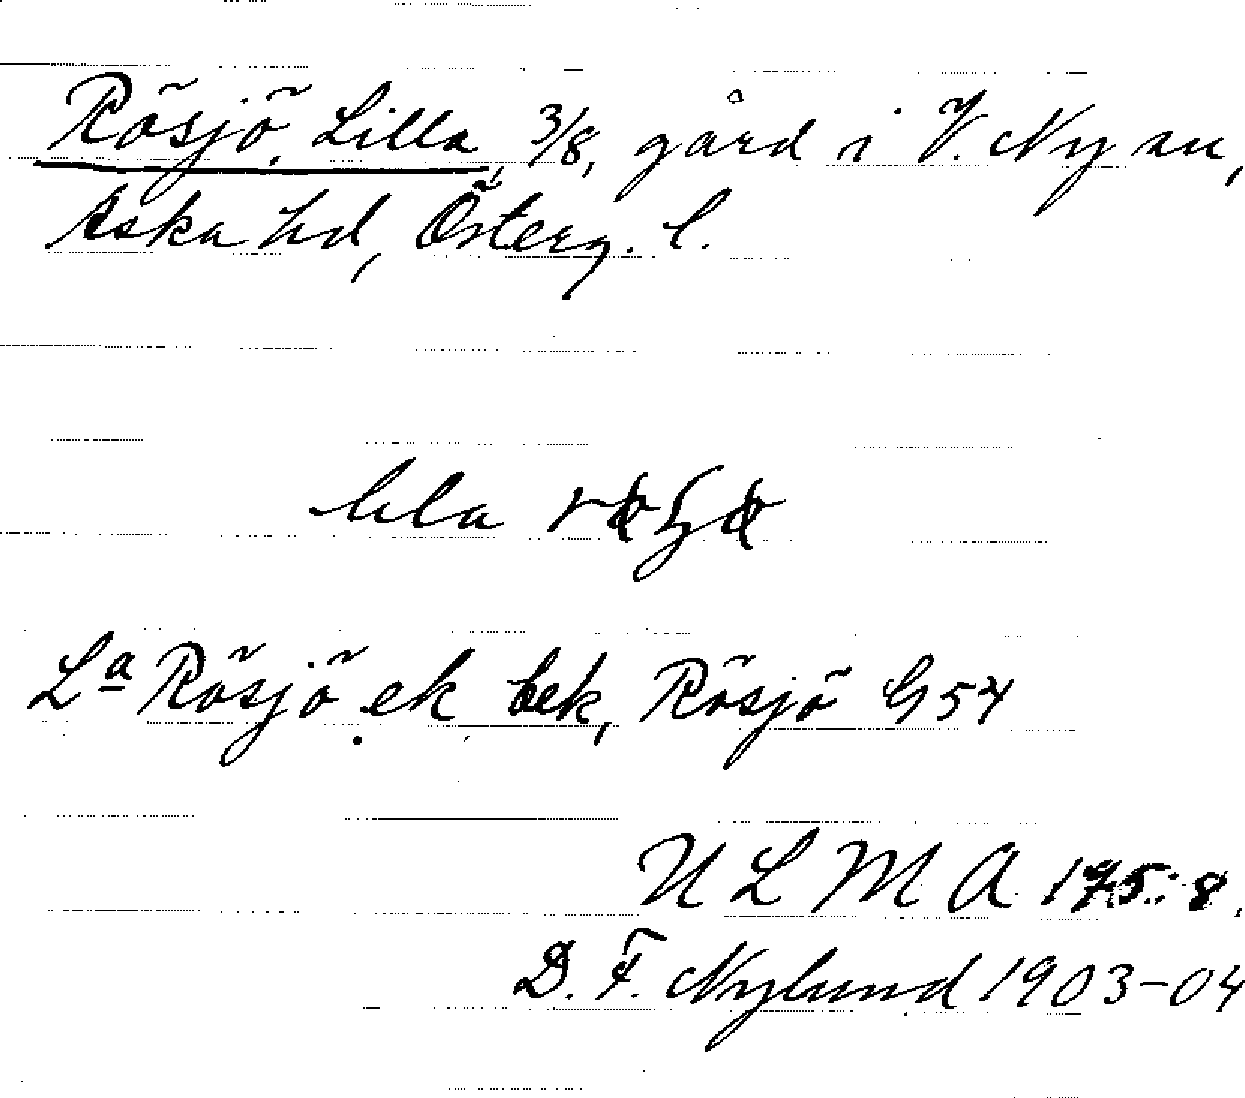 Rösjö, Lilla, 3/8, gård i V. Ny sn,
Aska hd, Österg. l.
La Rösjö ek bek, Rösjö G54
ULMA 175:8.
D. F. Nylund 1903-04